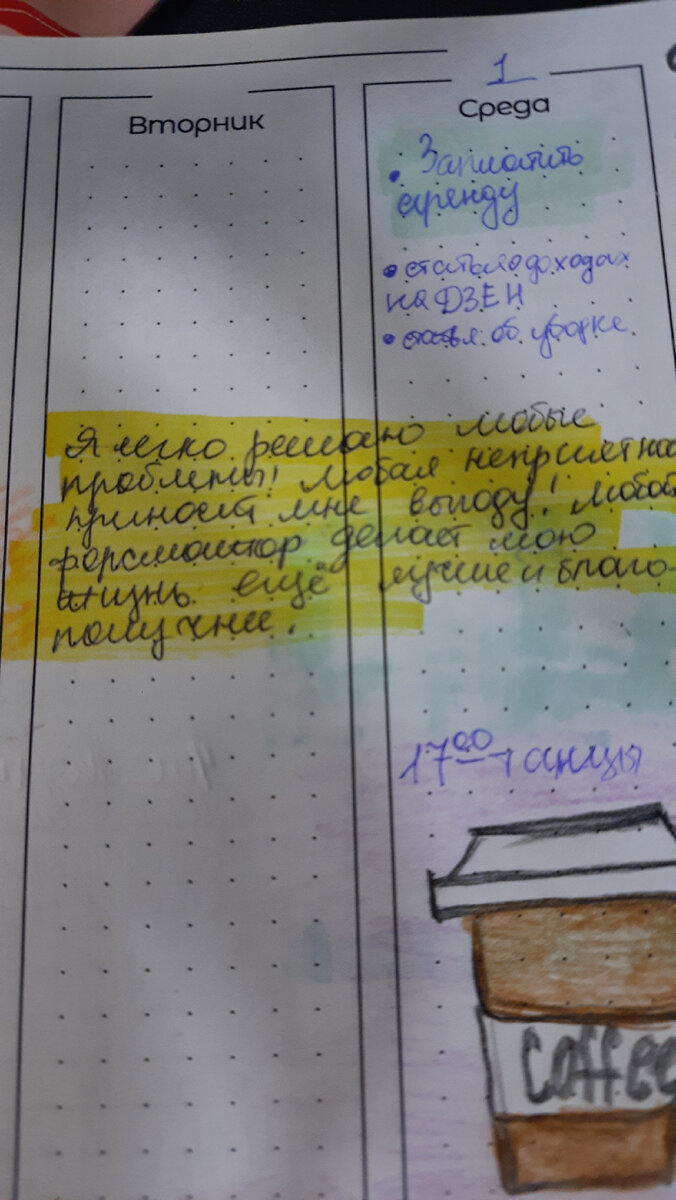 Вторник
1
Среда
• Заплатить
аренду
• статья о доходах
на ДЗЕН
• статья об уборке
Я легко решаю любые
проблемы! Любая неприятнос
приносит мне выгоду! Любой
форсмажор делает мою
жизнь ещё лучше и благо-
получнее.
17 00 - танцы
Coffee